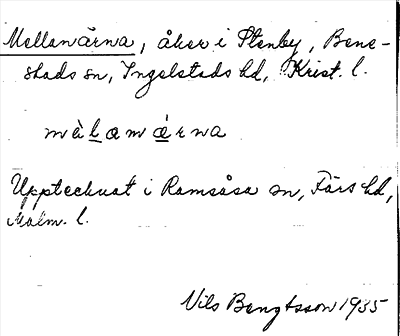 Mellanärna, åker i Stenby, Bene-
stads sn, Ingelstads hd, Krist. l.
mälamärna
Upptecknat i Ramsåsa sn, Färs hd,
Malm. l.
Nils Bengtsson 1935